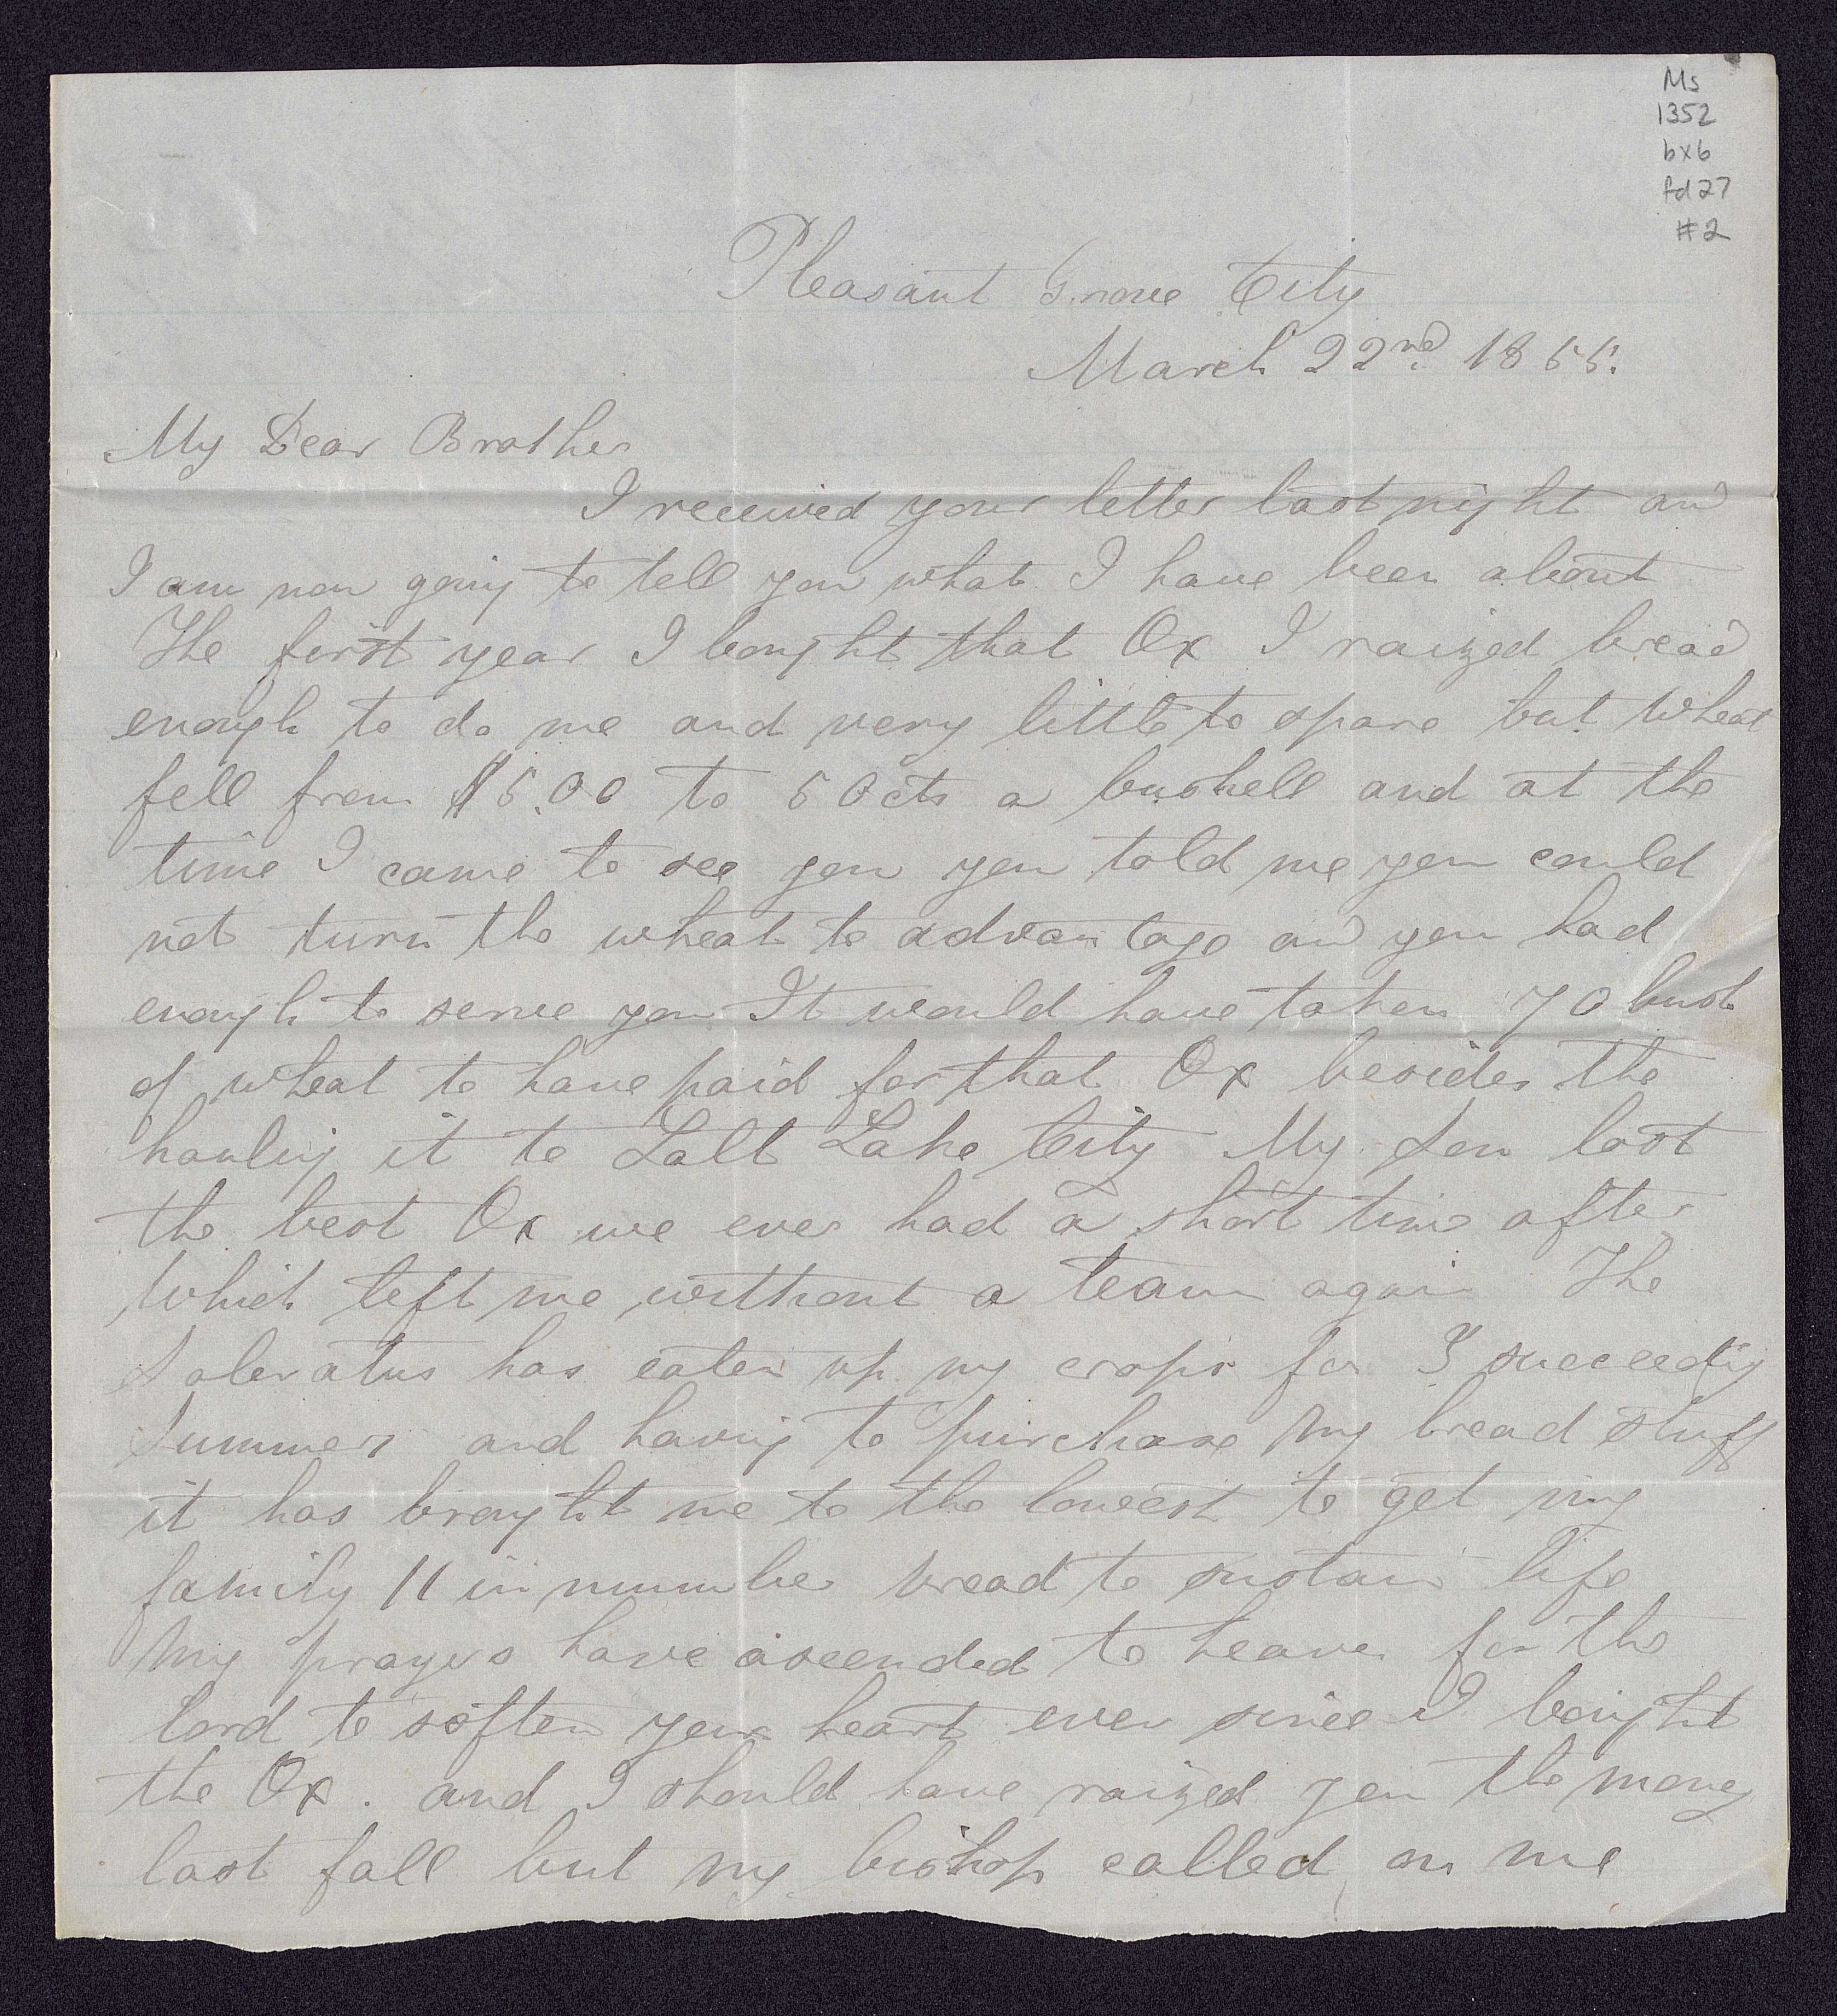 Ms
1352
bx6
fd27
#2
Pleasant Grove City
March 22nd 1855.
My Dear Brother
I received your letter last night and
I am now going to tell you what I have been about
The first year I bought that Ox I raized bread
enough to do me and very little to spare but Wheat
fell from $5.00 to 50cts a bushell and at the
time I came to see you you told me you could
not turn the wheat to advantage and you had
enough to serve you It would have taken 70 bush
of wheat to have paid for that Ox besides the
hauling it to Salt Lake City My Son lost
the best Ox we ever had a short time after
Which left me without a team again The
Saleratus has eaten up my crops for 3 succeedig
Summers and having to purchase my bread stuff
it has brought me to the lowest to get my
family 11 in number bread to sustain life
My prayers have ascended to heaven for the
lord to soften your heart ever since I bought
the Ox. and I should have raized you the money
last fall but my bishop called on me